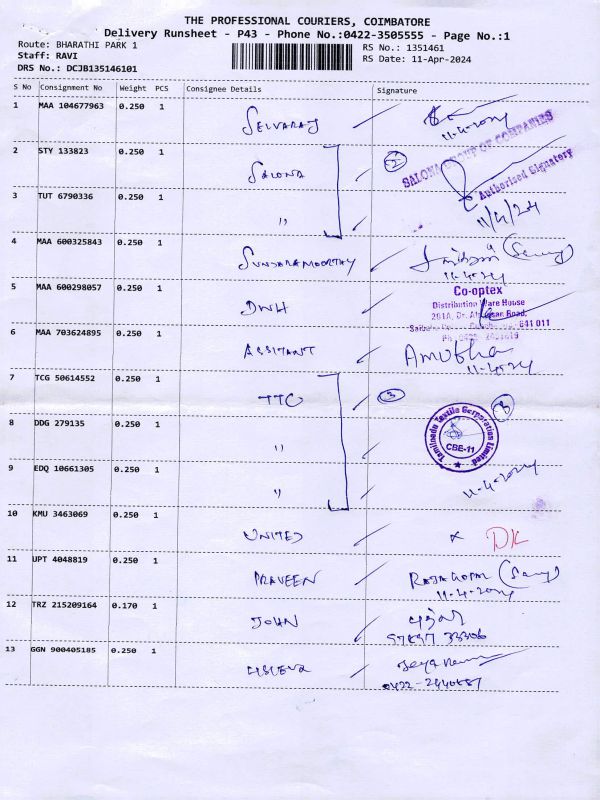 THE PROFESSIONAL COURIERS, COIMBATORE
Delivery Runsheet - P43 - Phone No.:0422-3505555 - Page No.:1
Route: BHARATHI PARK 1
RS No.: 1351461
Staff: RAVI
RS Date: 11-Apr-2024
DRS No.: DCJB135146101
S No Consignment No Weight PCS Consignee Details Signature
1 MAA 104677963 0.250 1 SELVARAJ
11-4-2024
2 STY 133823 0.250 1 SALONA 2
SALONA GROUP OF COMPANIES
Authorised Signatory
3 TUT 6790336 0.250 1 "
11/4/24
4 MAA 600325843 0.250 1 SUNDARAMOORTHY
11-4-24
5 MAA 600298057 0.250 1 DWH
Co-optex
Distribution Ware House
641 011
6 MAA 703624895 0.250 1 ASSISTANT
11-4-24
7 TCG 50614552 0.250 1 TTC 3
Tamilnadu Textile Corporation Limited
CBE-11
8 DDG 279135 0.250 1 "
9 EDQ 10661305 0.250 1 "
11-4-2024
10 KMU 3463069 0.250 1 UNITED x DK
11 UPT 4048819 0.250 1 PRAVEEN RAJAGOPAL
11-4-2024
12 TRZ 215209164 0.170 1 JOHN
13 GGN 900405185 0.250 1